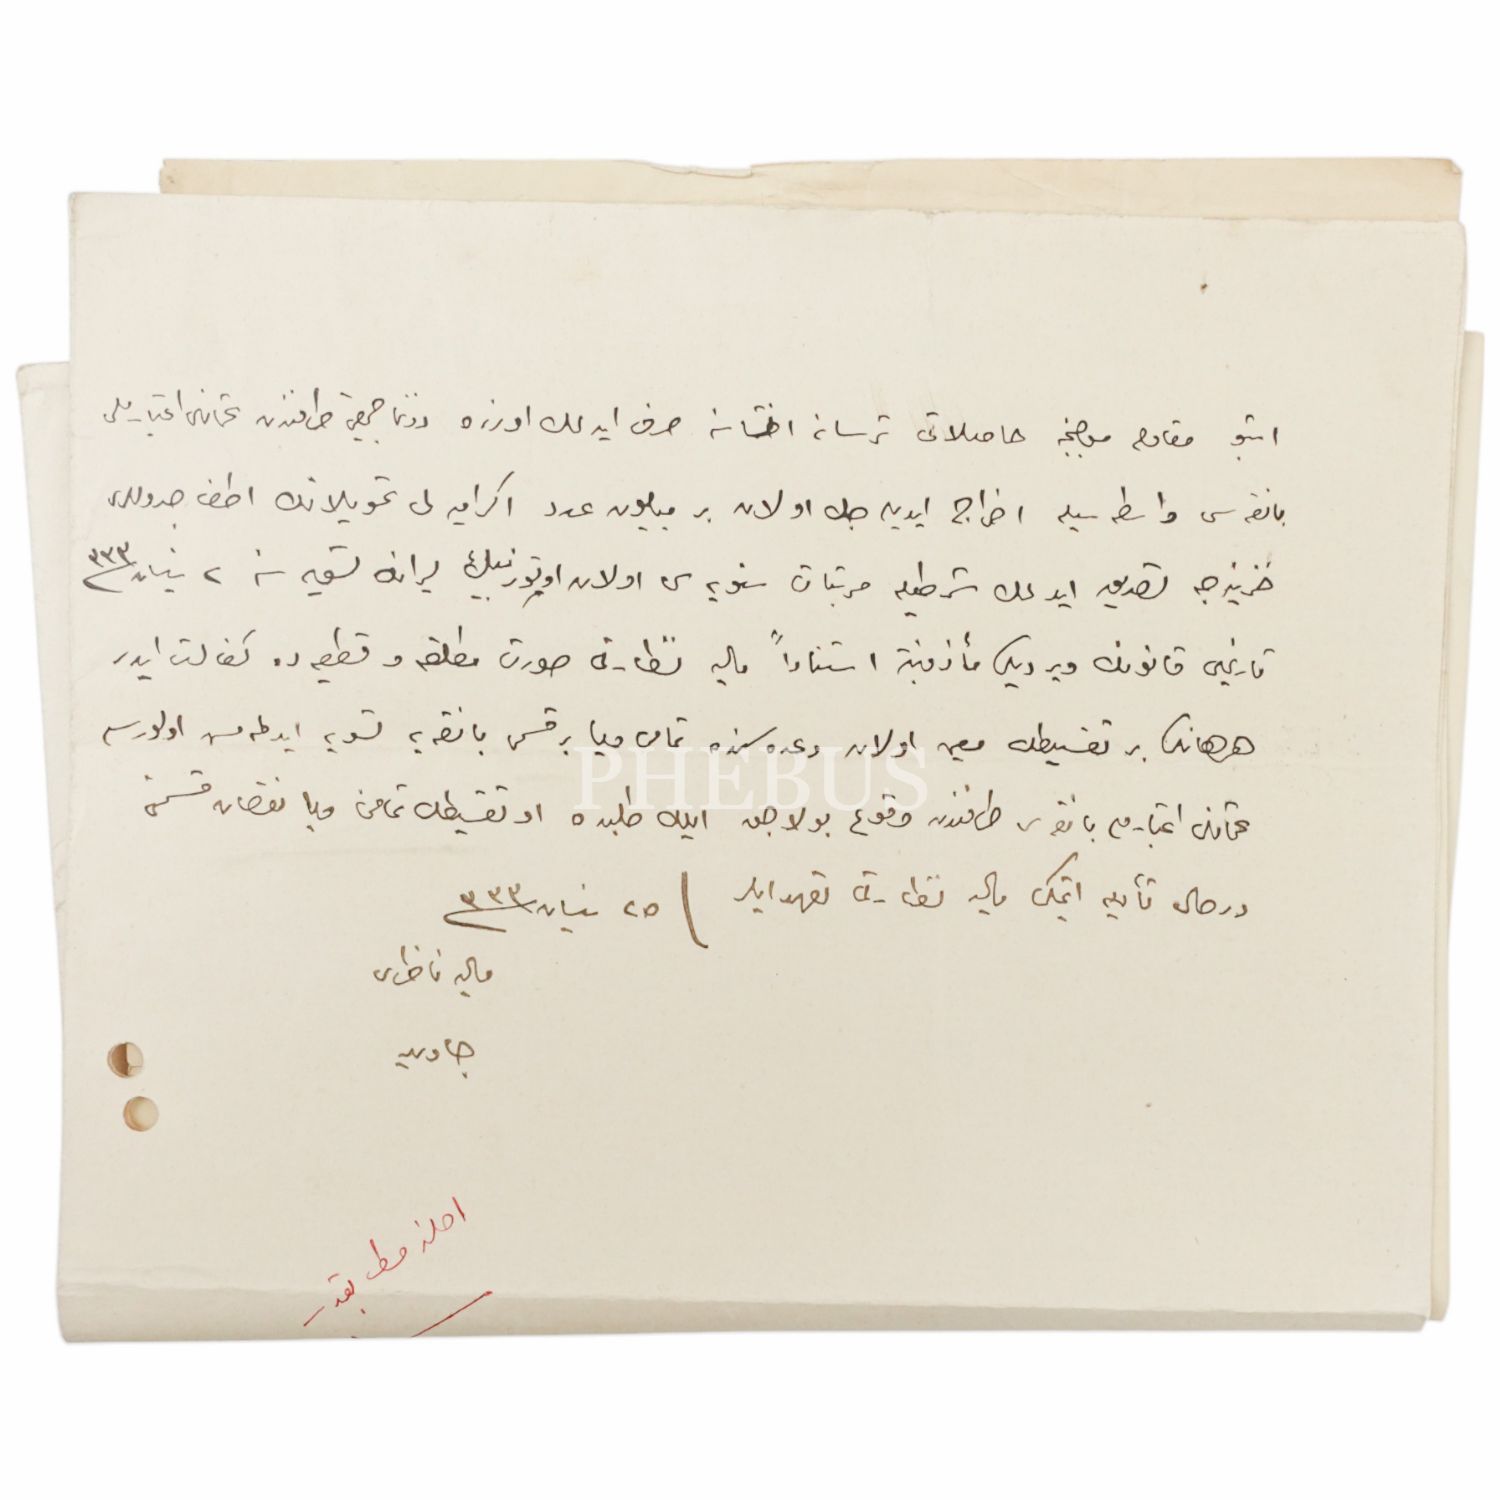 اشبو مقاوله موجبنجه حاصلاتی ترسانه انشاآتنه صرف ایدلمك اوزره دوننما جمعیتی طرفندن عثمانلی اعتبار ملی
بانقه‌سی واسطه‌سیله اخراج ایدیله‌جك اولان بر میلیون عدد اكرامیه‌لی تحویلاتك اطفا جدوللری
خزینه‌جه تصدیق ایدلمك شرطیله مرتبات سنویه‌سی اولان اوتوز بیك لیرانك تسویه‌سنه ٢ نیسان ٣٣٣
تاریخلی قانونك ویردیكی مأذونیته استناداً مالیه نظارتی صورت مطلقه و قطعیه‌ده كفالت ایدر
هرهانكی بر تقسیطك معین اولان وعده‌سنده تماماً ویا بر قسمی بانقه‌یه تسویه ایدلمه‌مش اولورسه
عثمانلی اعتبار ملی بانقه‌سی طرفندن وقوع بولاجق ایلك طلبده او تقسیطك تمامنی ویا نقصان قسمنی
درحال تأدیه ایتمكی مالیه نظارتی تعهد ایلر ٢٥ نیسان ٣٣٣
مالیه ناظری
جاوید
PHEBUS
اصلنه مطابقدر